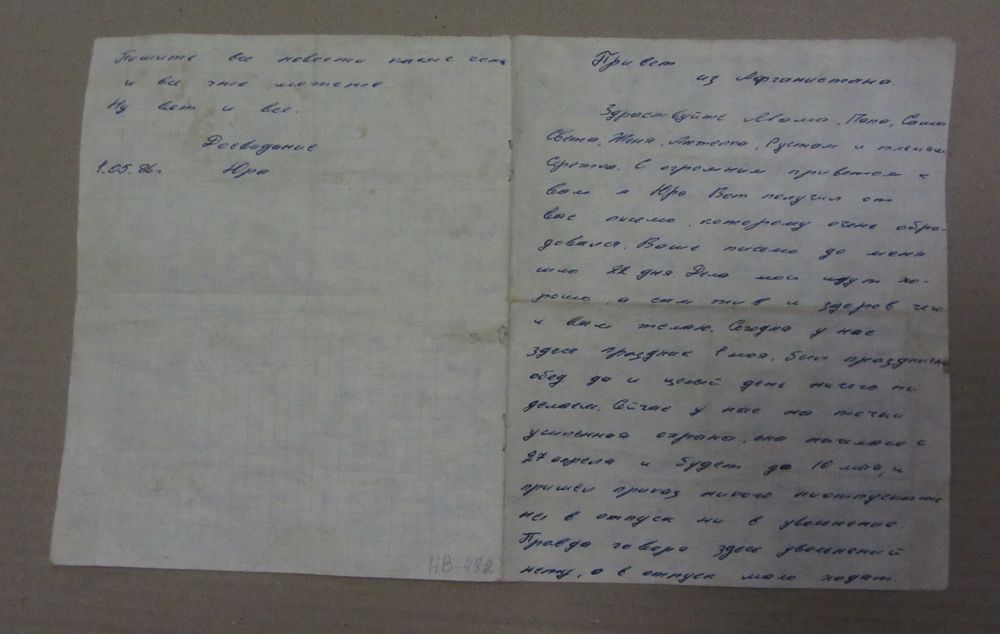 Пишите все новости какие есть
и все что можете.
Ну вот и все.
Досведание
1.05.86г. Юра
НВ-482
Привет
из Афганистана.
Здраствуйте Мама, Папа, Саша
Света, Женя, Анжелка, Рустам и
Сережка. С огромным приветом к
вам я Юра Вот получил от
вас письмо, которому очень обра-
довался. Ваше письмо до меня
шло 22 дня. Дела мои идут хо-
рошо, а сам жив и здоров чего
и вам желаю. Сегодня у нас
здесь праздник 1 мая. Был праздничный
обед да и целый день ничего ни
делаем. Сейчас у нас на точки
усиленная охрана, она началась с
27 апреля и будет до 10 мая, и
пришел приказ никого ниотпускать
ни в отпуск ни в увольнение.
Правда говоря здесь увольнений
нету, а в отпуск мало ходят